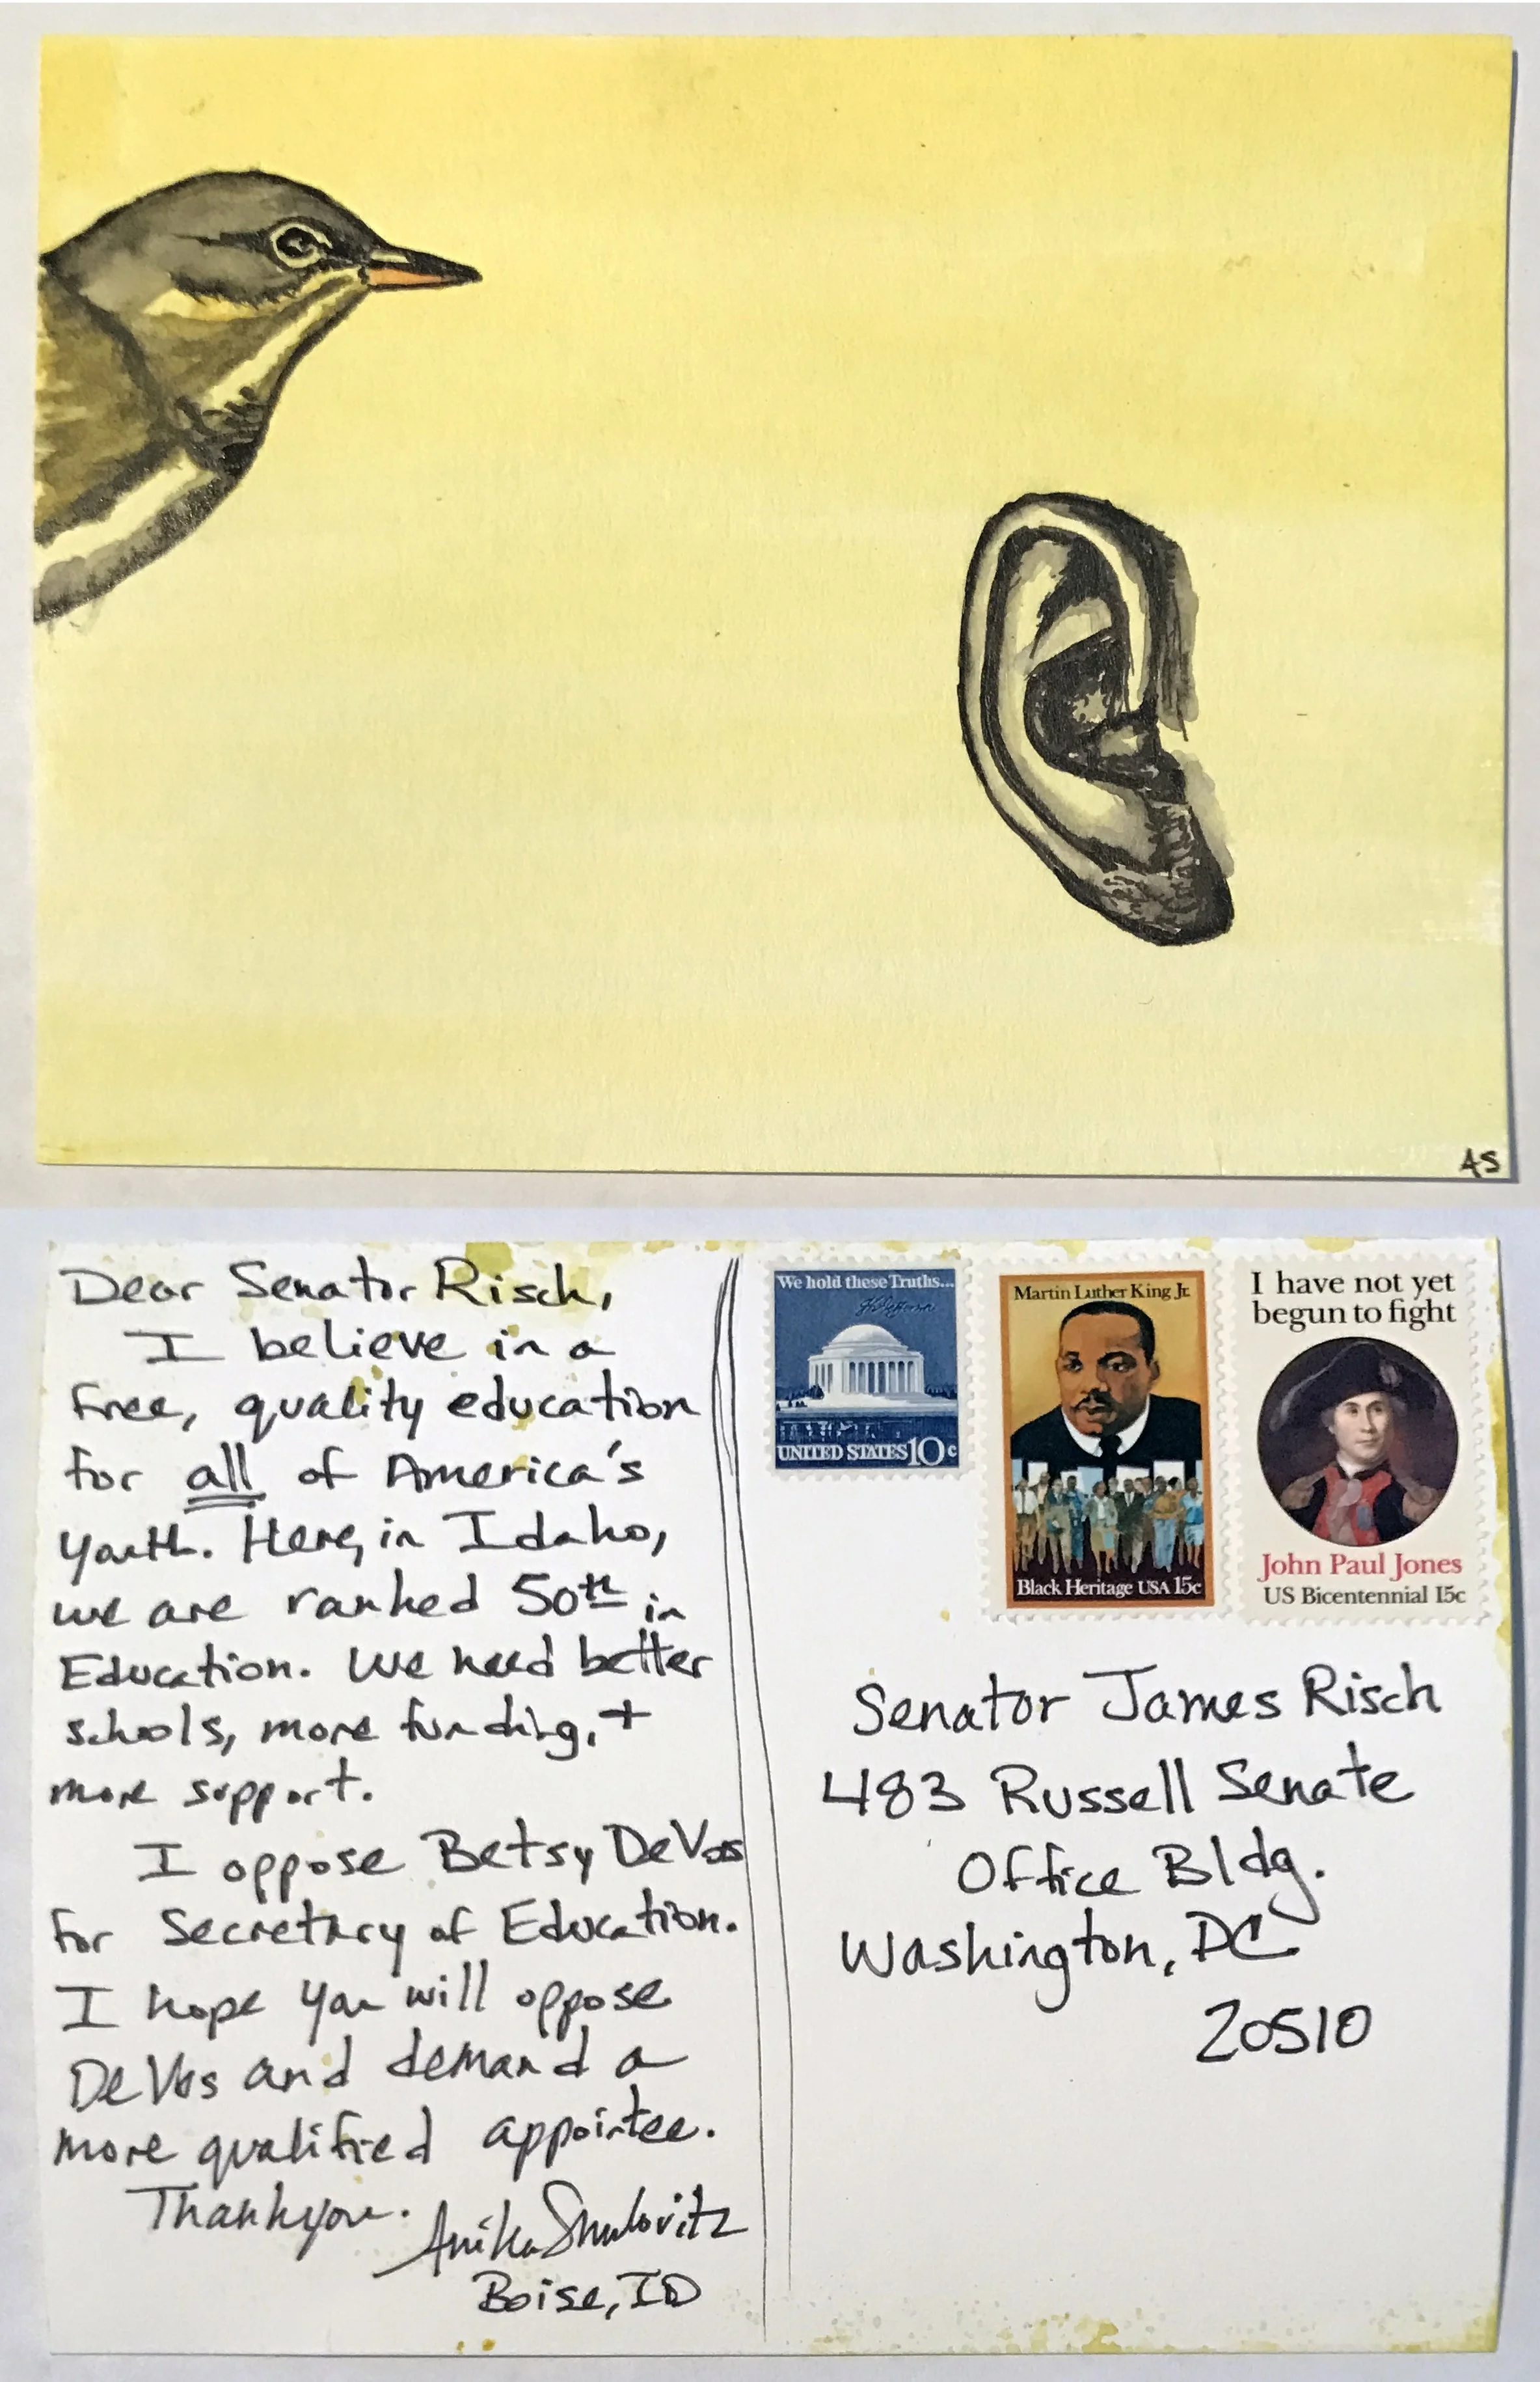 AS
Dear Senator Risch,
I believe in a
free, quality education
for all of America's
youth. Here, in Idaho,
we are ranked 50th in
Education. We need better
schools, more funding, +
more support.
I oppose Betsy DeVos
for Secretary of Education.
I hope you will oppose
DeVos and demand a
more qualified appointee.
Thank you.
Anika Smulovitz
Boise, ID
We hold these Truths...
UNITED STATES 10c
Martin Luther King Jr.
Black Heritage USA 15c
I have not yet
begun to fight
John Paul Jones
US Bicentennial 15c
Senator James Risch
483 Russell Senate
Office Bldg.
Washington, DC
20510